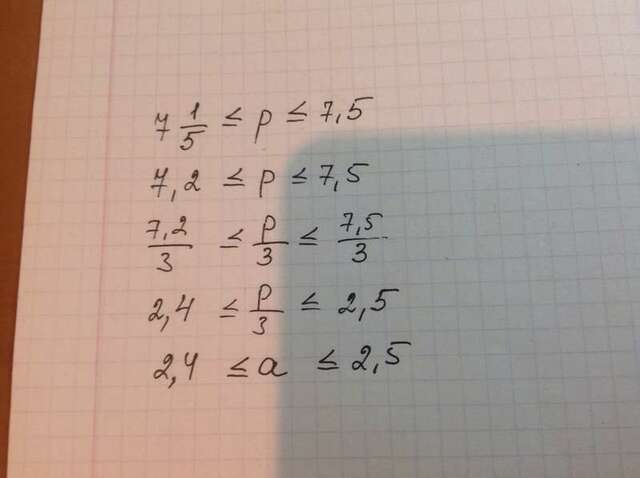 7 1/5 ≤ p ≤ 7,5
7,2 ≤ p ≤ 7,5
7,2/3 ≤ p/3 ≤ 7,5/3
2,4 ≤ p/3 ≤ 2,5
2,4 ≤ a ≤ 2,5